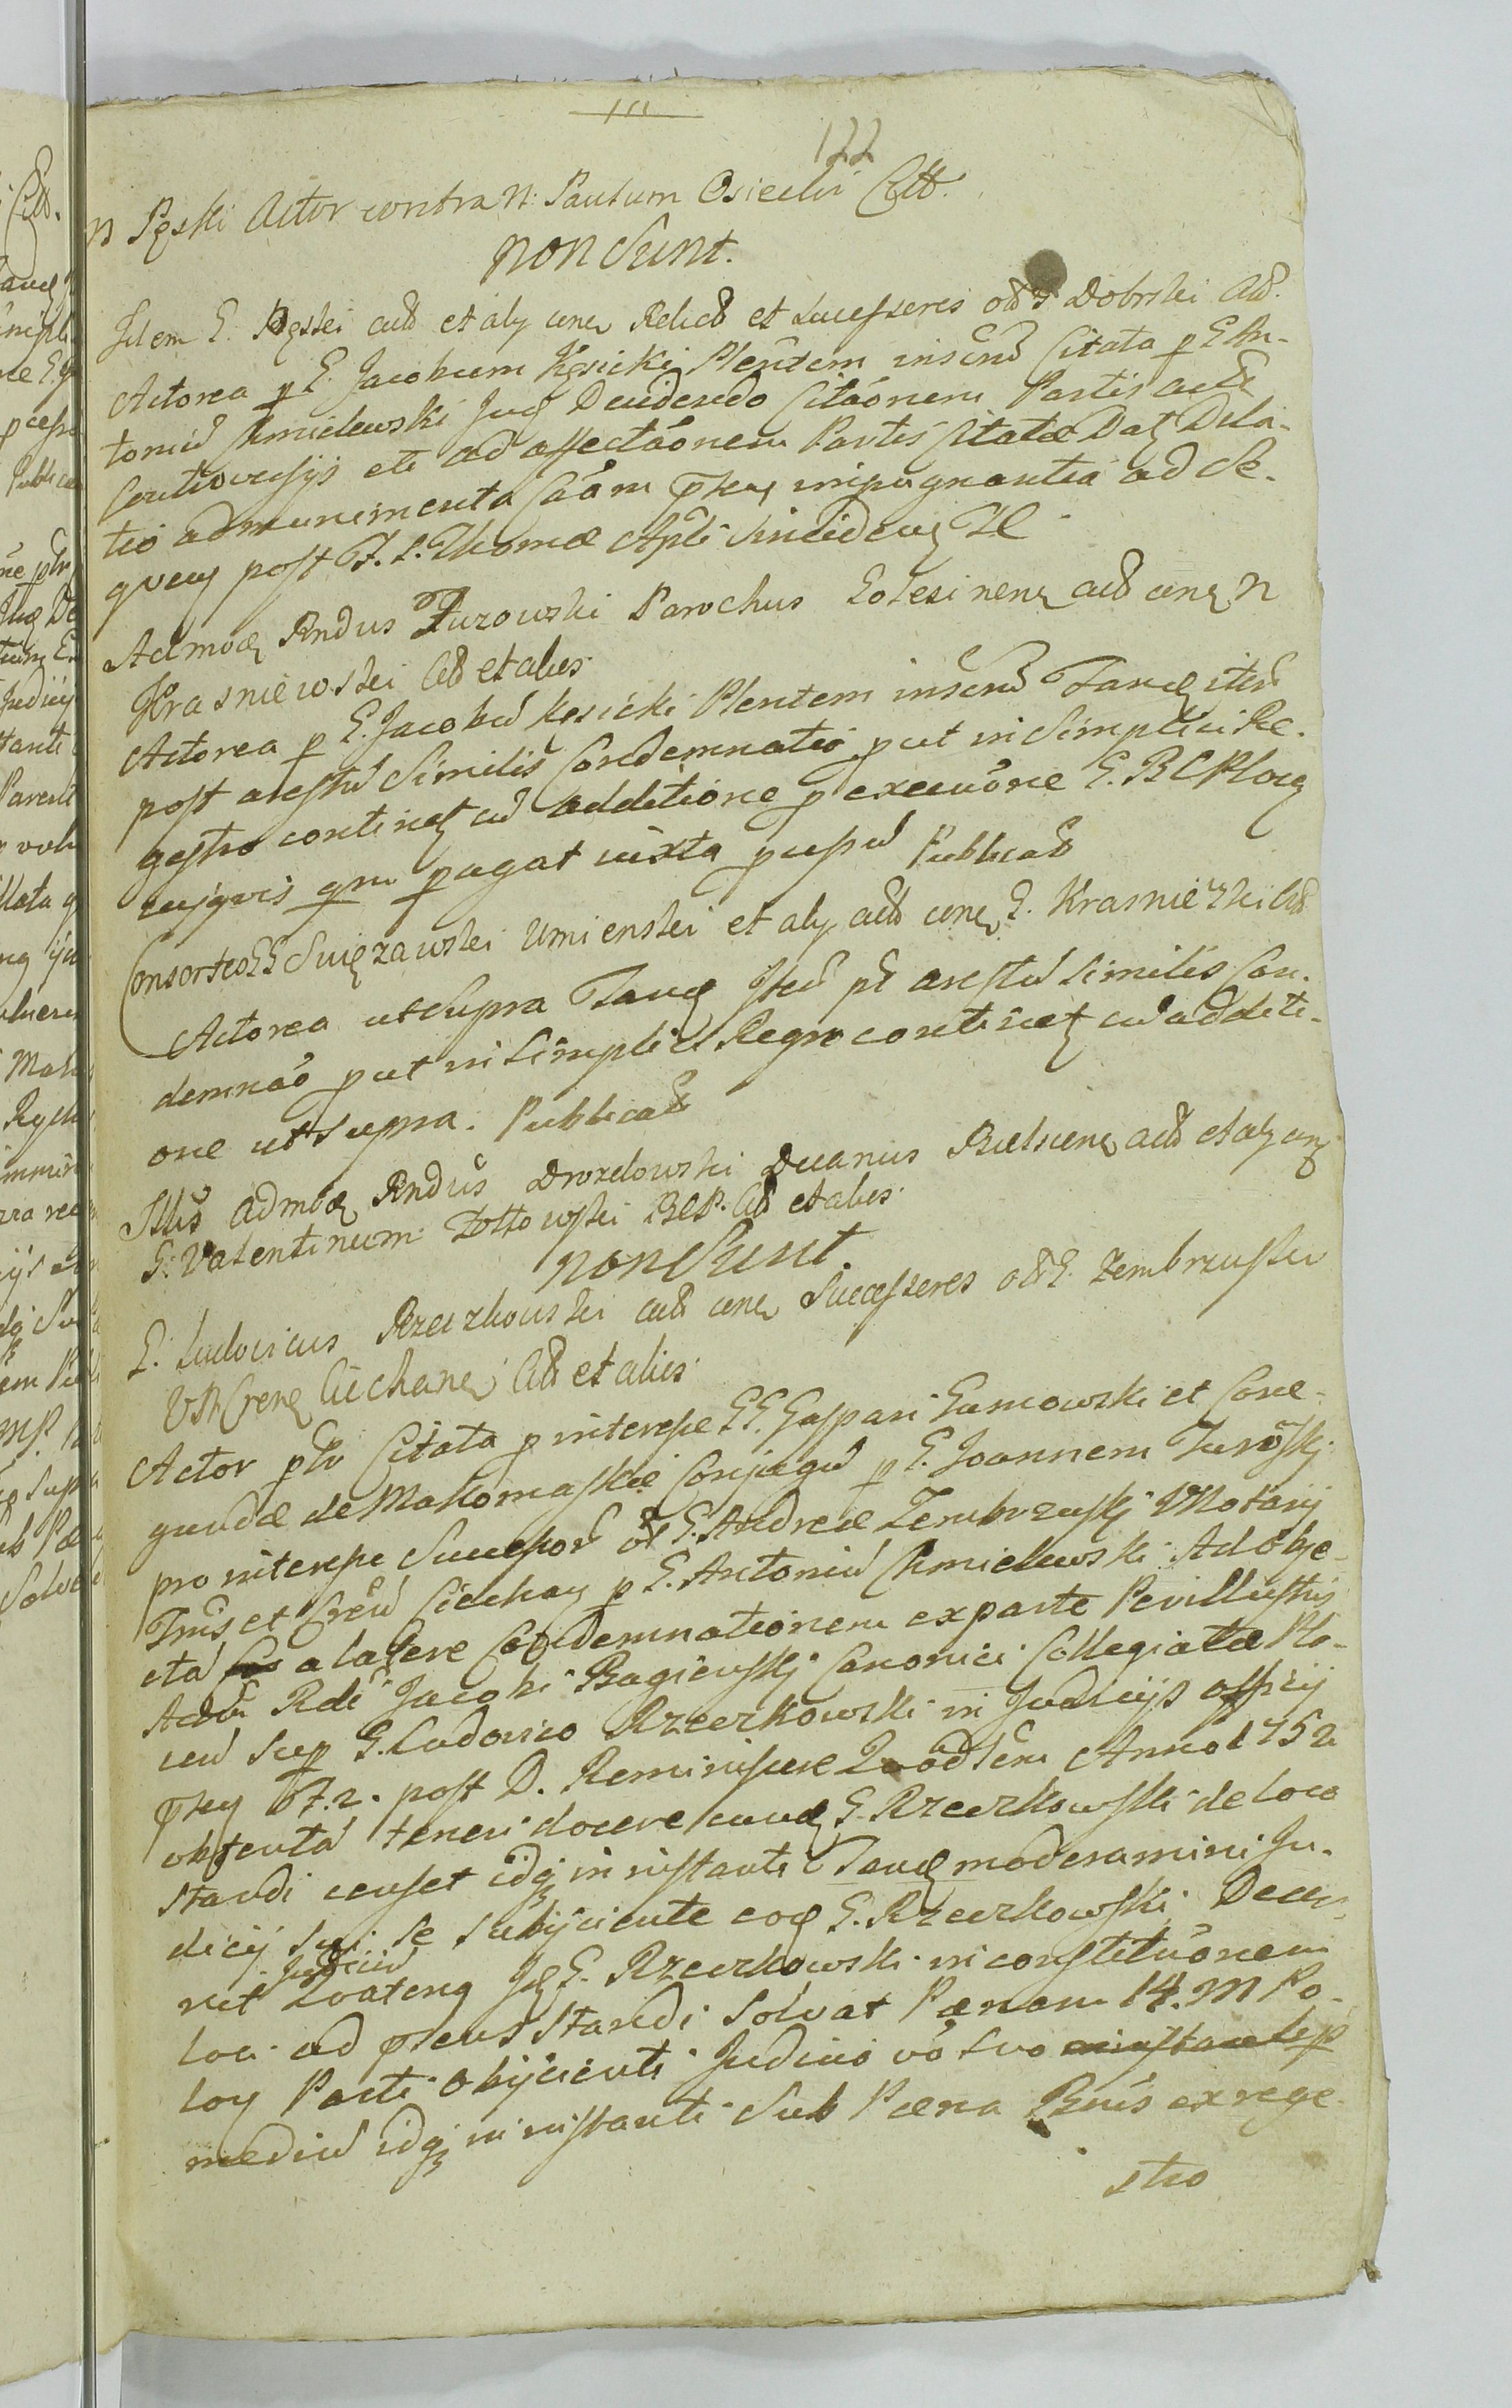 111
122
N Pęski Actor contra N: Paulum Osiecki Citt.
non sunt.
Idem G. Pęski act et aly cone Relict et Sucessores olt G Dobrski Citt.
Actorea p G. Jacobum Kęsicki Plentem inscrid Citata p G An-
tonid Chmielewski Jug Decidendo Citaõnem Partis actt
Controversijs etc ad affectaõnem Partis Citatæ Dat Dila-
tio ad munimenta Caám phus impugnantia ad Se-
quens post F. S. Thomæ Apli incidens
Admod Rndus Zurowski Parochus act cone N
Krasniewski Citt et alios
Actorea p G. Jacobud Kęsicki Plentem inscrid Tandę iterd
post arestud Similis Condemnatio put in Simplici Re-
gestro continet cud additione p execuõne G. B C Ploc
cujqvis qm pagat iuxta Publicatt
Consortes GG Swięzawski Umienski et aly actt cone G. Krasniewski Citt
Actorea ut supra Tandę Iterd pt arestud Similis Con-
demnaõ put in Simplici Regro continet cud additi-
one ut supra. Publicatt
Illris Admod Rndus Drozdowski Decanus Bielscens actt et aly cone
G. Valentinum Zottowski BCP. Citt et alios
non sunt
G. Ludovicus Rzeczkowski actt cone Sucessores olt G. Zembrzuski
VNCrenę Ciechane Citt et alios
Actor phr Citata p interesse GG. Gaspari Humowski et Cone-
gundæ de Makomaskie Conjugud p G. Joannem Turoski
pro interesse Sucessord olt G. Andreæ Zembrzuski VNotarij
Trris et Cren Ciechan p G. Antonid Chmielewski Ad obje-
ctad a latere Condemnationem ex parte Perillustris
Adm Rdi Jacobi Bagienski Canonici Collegiatæ Plo-
cen sup G. Ludovico Rzeczkowski in Judicijs officij
phus F. 2. post D. Reminiscere Anno 1752
obtentad teneri docere eundę G. Rzeczkowski de loco
standi censet idq in instanti Tandę moderamini Ju-
dicij sui se subijciente eoq G. Rzeczkowski Decer-
nit Judicid Qvateng Jd G. Rzeczkowski in constitutõnem
loci ad phens standi Solvat Pænam 14. M Po-
lon Parti Objicienti Judicio vo Suo
mediud idq in instanti Sub Pæna Bnis ex rege
stro